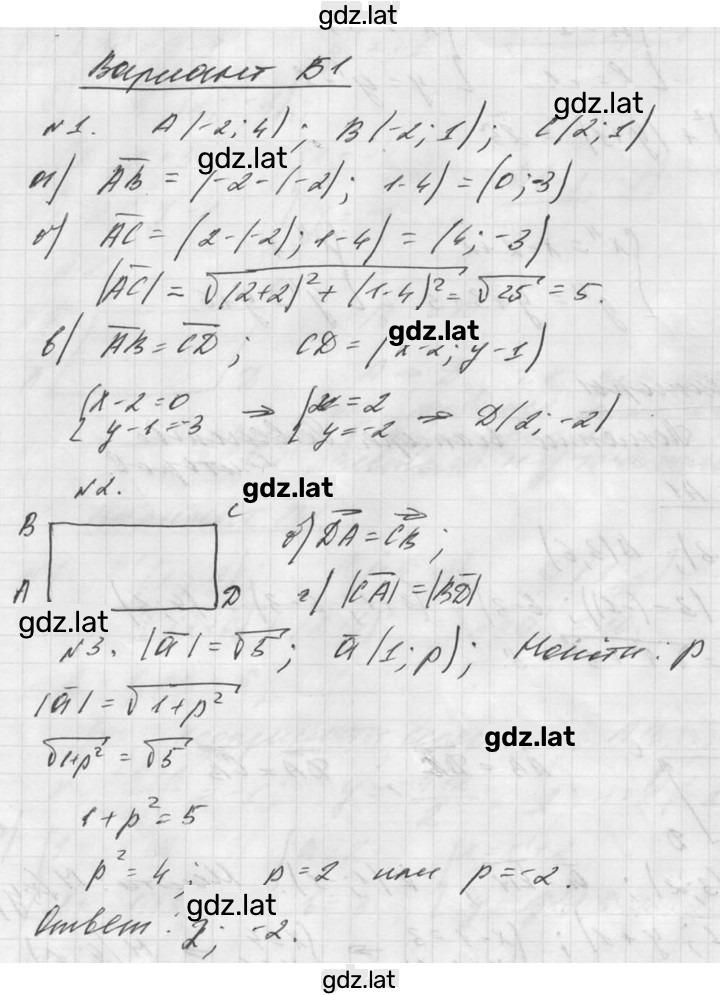 gdz.lat
Вариант Б1
gdz.lat
№1. A(-2; 4); B(-2; 1); C(2; 1)
gdz.lat
а) AB = (-2-(-2); 1-4) = (0; -3)
б) AC = (2-(-2); 1-4) = (4; -3)
|AC| = √(2+2)² + (1-4)² = √25 = 5.
gdz.lat
в) AB = CD; CD = (x-2; y-1)
{x-2=0 ⇒ {x=2
{y-1=-3 {y=-2 ⇒ D(2; -2)
№2.
gdz.lat
B C
б) DA = CB;
A D
г) |CA| = |BD|
gdz.lat
№3. |a| = √5; a(1; p); Найти: p
|a| = √1+p²
gdz.lat
√1+p² = √5
1+p² = 5
p² = 4; p=2 или p=-2.
gdz.lat
Ответ: 2; -2.
gdz.lat